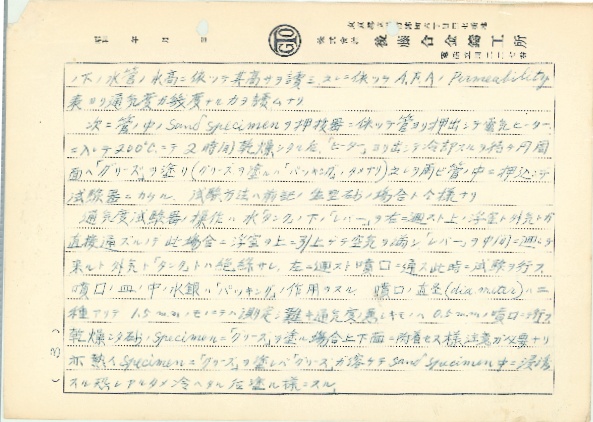 昭和 年 月 日
GTO
株式会社 後藤合金鑄工所
ノ下ノ水管ノ水高ニ依ツテ其高サヲ讀ミ、之ニ依ツテ A.F.A ノ Permeability
表ヨリ通気度ガ幾度ナルカヲ讀ムナリ
次ニ管ノ中ノ Sand Specimen ヲ押拔器ニ依ツテ管ヨリ押出シテ電気ヒーター
ニ入レテ200℃ニテ2時間乾燥シタル后「ヒーター」ヨリ出シテ冷却スルヲ待ケ円周
面ヘ「グリース」ヲ塗リ(グリースヲ塗ルハ「パッキング」ノタメナリ)之レヲ再ビ管ノ中ニ押込ンデ
試験器ニカケル、試験方法ハ前記ノ生型砂ノ場合ト全様ナリ
通気度試験器ノ操作ハ水「タンク」ノ下ノ「レバー」ヲ右ニ廻ストキ上ノ浮室ト外気トガ
直接通ズルノデ此場合ニ浮室ヲ上ニ引上ゲテ空気ヲ満シ「レバー」ヲ中间ニ廻シテ
来ルト外気ト「タンク」トハ絶縁サレ、左ニ廻スト噴口ニ通ス此時ニ試験ヲ行フ
噴口ノ皿ノ中ノ水銀ハ「パッキング」ノ作用ヲスル 噴口ノ直径(diameter)ハ二
種アリテ 1.5 m.m ノモノニテハ測定シ難キ通気度ノ悪シキモノハ 0.5 m.m ノ噴口ニテ行フ
乾燥シタ砂ノ Specimen ニ「グリース」ヲ塗ル場合上下面ニ附着セヌ様注意ガ必要ナリ
亦熱イ Specimen ニ「グリース」ヲ塗レバ「グリース」ガ溶ケテ Sand Specimen 中ニ浸透
スル恐レアルタメ冷ヘタル后塗ル様ニスル
(3)